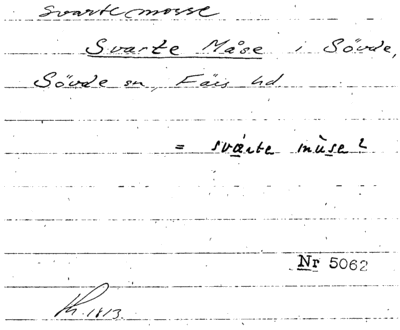 Svartemosse
Svarte Måse i Sövde,
Sövde sn, Färs hd
= svarte müse?
Nr 5062
Kr. 1813